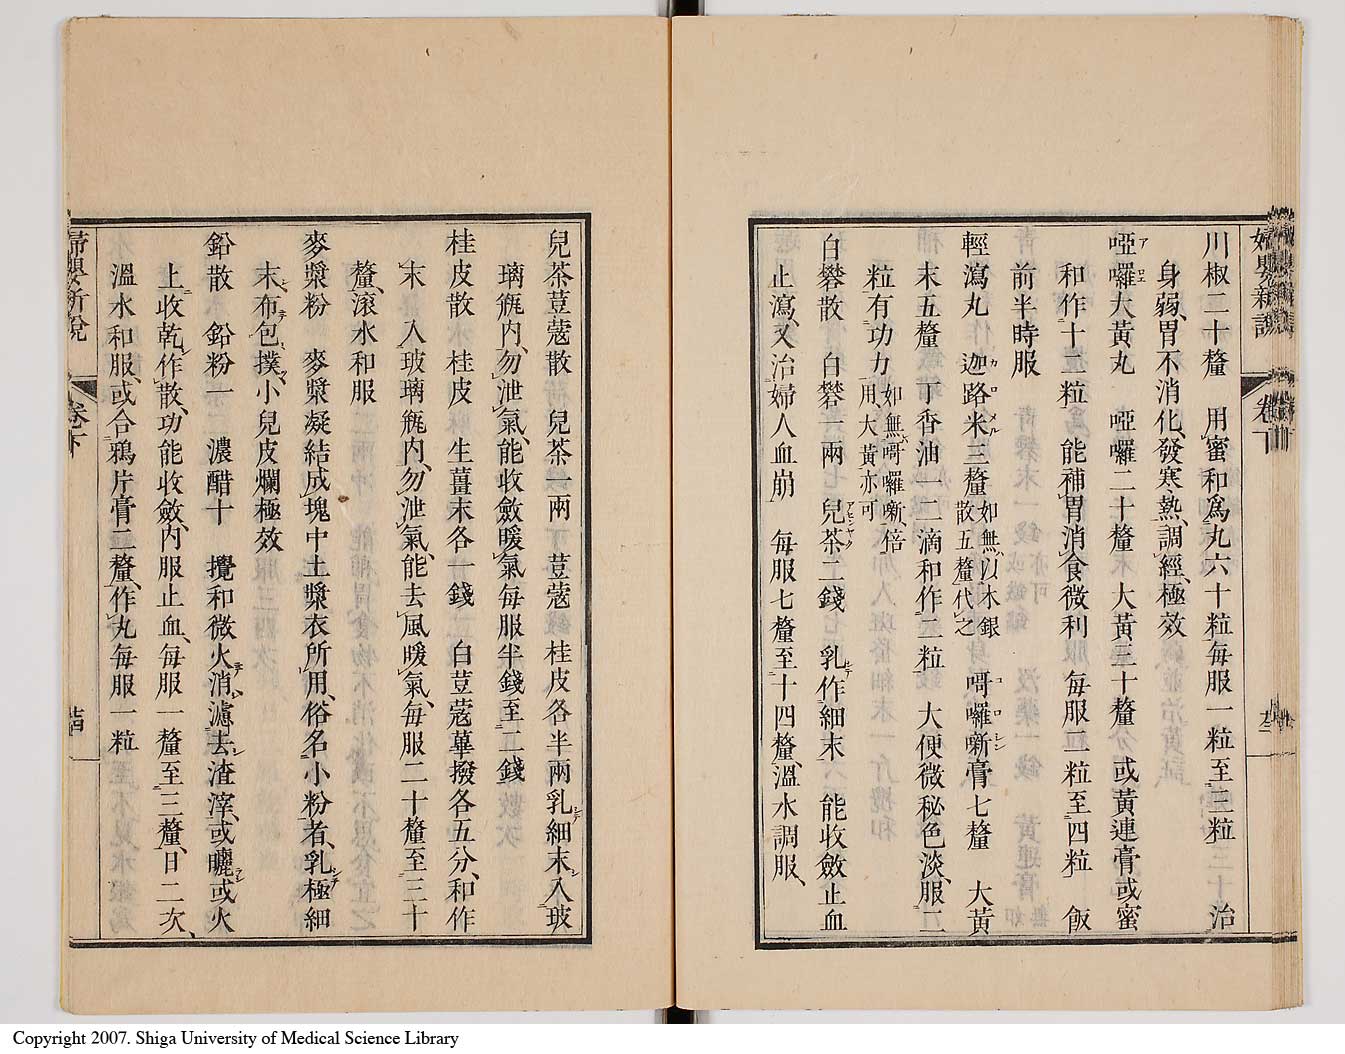 婦嬰新說 卷下
川椒二十釐 用蜜和爲丸六十粒每服一粒至三粒 治
身弱、胃不消化、發寒熱、調經、極效
啞囉大黃丸 啞囉二十釐 大黃三十釐或黃連膏或蜜
和作十二粒 能補胃消食微利 每服二粒至四粒 飯
前半時服
輕瀉丸 迦路米三釐 如無以水銀散五釐代之 哥囉噺膏七釐 大黃
末五釐 丁香油一二滴和作二粒 大便微秘色淡、服二
粒有功力 如無哥囉噺、倍用大黃亦可
白礬散 白礬一兩 兒茶二錢 乳作細末 能收斂止血
止瀉、又治婦人血崩 每服七釐至十四釐、溫水調服、
兒茶荳蔻散 兒茶一兩 荳蔻 桂皮各半兩乳細末入玻
璃甁內、勿泄氣、能收斂暖氣每服半錢至二錢
桂皮散 桂皮 生薑末各一錢 白荳蔻蓽撥各五分、和作
末 入玻璃甁內、勿泄氣、能去風暖氣、每服二十釐至三十
釐、滾水和服
麥漿粉 麥漿凝結成塊中土漿衣所用、俗名小粉者、乳極細
末布包撲小兒皮爛極效
鉛散 鉛粉一 濃醋十 攪和微火消濾去渣滓、或曬或火
上收乾作散、功能收斂、內服止血、每服一釐至三釐、日二次、
溫水和服、或合鴉片膏一釐、作丸每服一粒
婦嬰新說 卷下 廿四
Copyright 2007. Shiga University of Medical Science Library